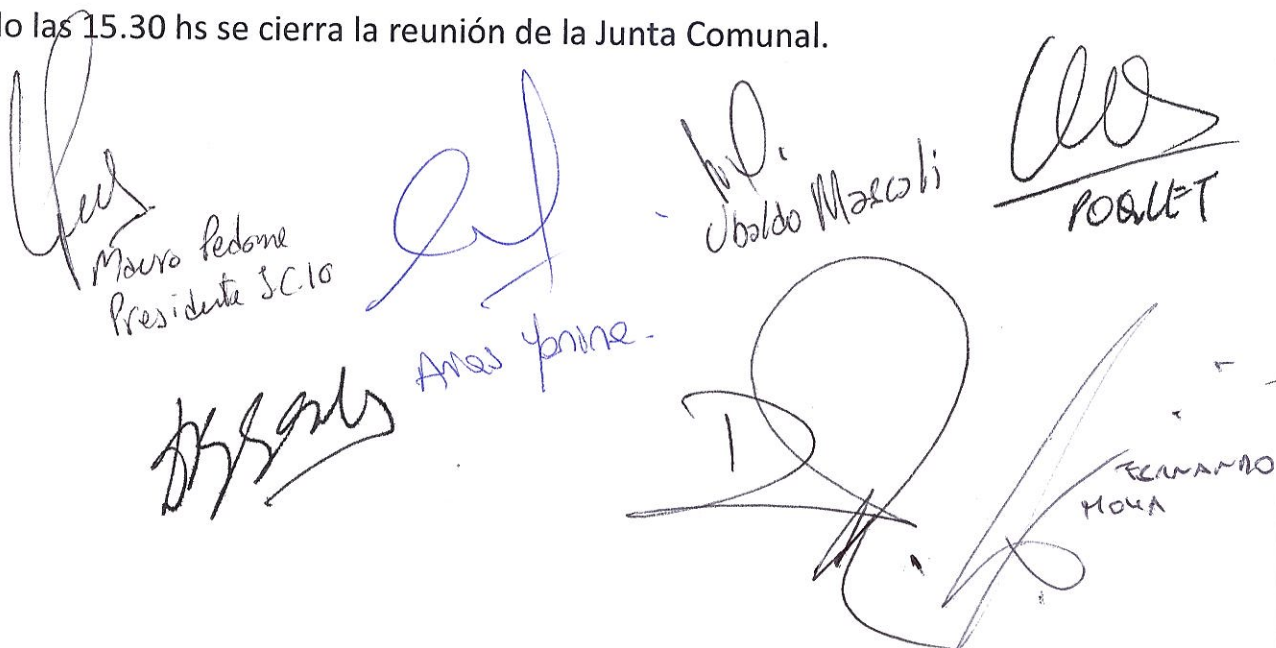 do las 15.30 hs se cierra la reunión de la Junta Comunal.
Mauro Pedone
Presidente J.C.10
Ubaldo Mascali
POQUET
Arias Yanina.
FERNANDO
MOYA